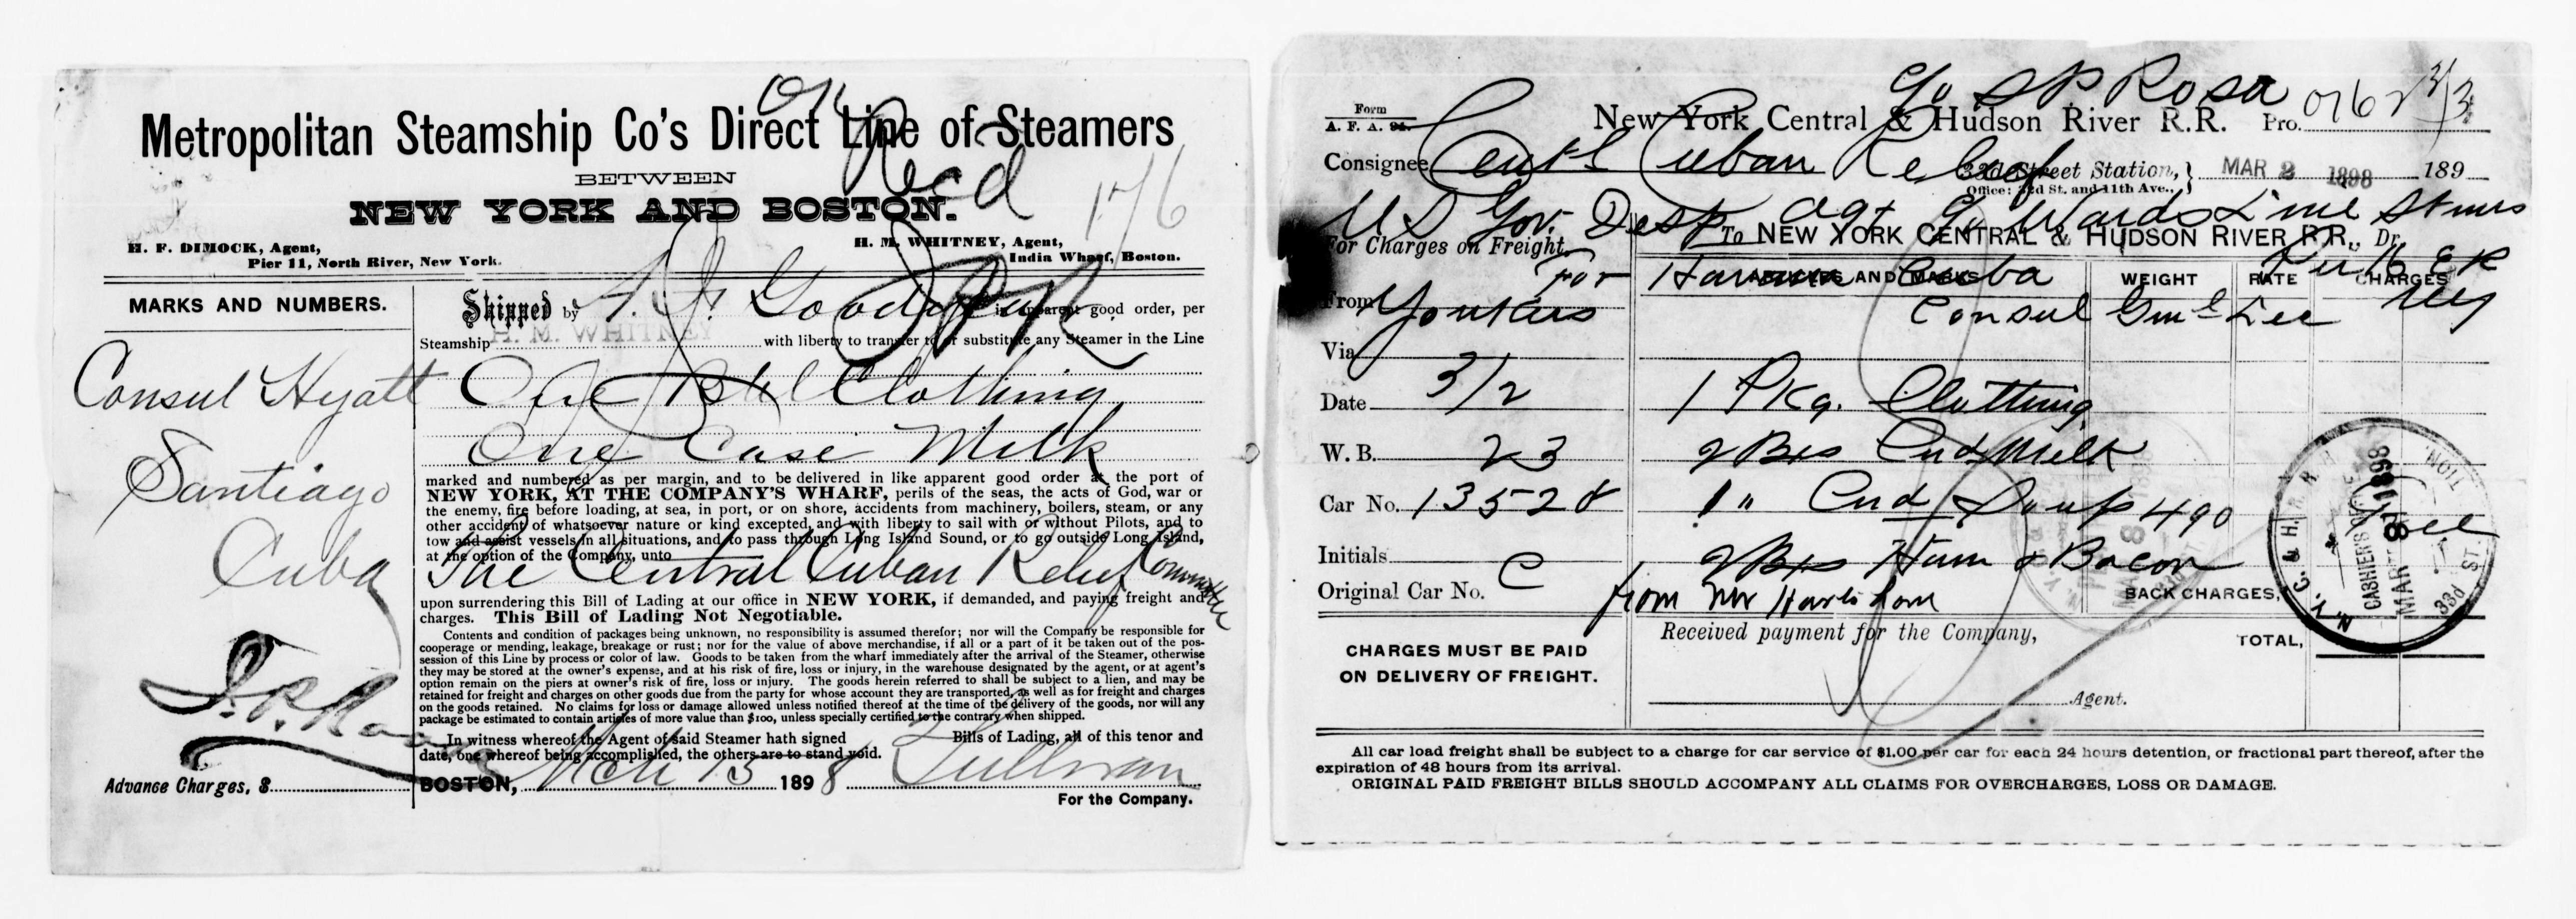 OK
Metropolitan Steamship Co's Direct Line of Steamers
Recd
BETWEEN
176
NEW YORK AND BOSTON.
H. F. DIMOCK, Agent,
Pier 11, North River, New York.
H. M. WHITNEY, Agent,
India Wharf, Boston.
MARKS AND NUMBERS.
Consul Hyatt
Santiago
Cuba
Advance Charges, $
Shipped by in apparent good order, per
H. M. WHITNEY
Steamship with liberty to transfer to or substitute any Steamer in the Line
One Bbl Clothing
One Case Milk
marked and numbered as per margin, and to be delivered in like apparent good order at the port of
NEW YORK, AT THE COMPANY'S WHARF, perils of the seas, the acts of God, war or
the enemy, fire before loading, at sea, in port, or on shore, accidents from machinery, boilers, steam, or any
other accident of whatsoever nature or kind excepted, and with liberty to sail with or without Pilots, and to
tow and assist vessels in all situations, and to pass through Long Island Sound, or to go outside Long Island,
at the option of the Company, unto
The Central Cuban Relief Committee
upon surrendering this Bill of Lading at our office in NEW YORK, if demanded, and paying freight and
charges. This Bill of Lading Not Negotiable.
Contents and condition of packages being unknown, no responsibility is assumed therefor; nor will the Company be responsible for
cooperage or mending, leakage, breakage or rust; nor for the value of above merchandise, if all or a part of it be taken out of the pos-
session of this Line by process or color of law. Goods to be taken from the wharf immediately after the arrival of the Steamer, otherwise
they may be stored at the owner's expense, and at his risk of fire, loss or injury, in the warehouse designated by the agent, or at agent's
option remain on the piers at owner's risk of fire, loss or injury. The goods herein referred to shall be subject to a lien, and may be
retained for freight and charges on other goods due from the party for whose account they are transported, as well as for freight and charges
on the goods retained. No claims for loss or damage allowed unless notified thereof at the time of the delivery of the goods, nor will any
package be estimated to contain articles of more value than $100, unless specially certified to the contrary when shipped.
In witness whereof the Agent of said Steamer hath signed Bills of Lading, all of this tenor and
date, one whereof being accomplished, the others are to stand void.
BOSTON, Mch 15 1898 Sullivan
For the Company.
Form
A. F. A. 94.
c/o S P Rosa
New York Central & Hudson River R.R. Pro. 0762 3/3
Consignee Centl Cuban Relief
33d Street Station, MAR 2 1898 189
Office: 33d St. and 11th Ave.,
U S Gov. Desp agt c/o Wards Line Stmrs
For Charges on Freight, To NEW YORK CENTRAL & HUDSON RIVER R.R., Dr.
For Havana Cuba
ARTICLES AND MARKS WEIGHT RATE CHARGES
Pier 16 E R
NY
From Yonkers
Consul Genl Lee
Via
Date 3/2
1 Pkg. Clothing
W. B. 23
2 Bxs Cnd Milk
Car No. 13528
1 " Cnd Soup 490
Initials
2 Bxs Ham & Bacon
Original Car No. C
BACK CHARGES,
Received payment for the Company,
TOTAL,
CHARGES MUST BE PAID
ON DELIVERY OF FREIGHT.
Agent.
N.Y.C. & H.R.R.R.
CASHIER'S OFFICE
MAR 8 1898
33d ST.
All car load freight shall be subject to a charge for car service of $1.00 per car for each 24 hours detention, or fractional part thereof, after the
expiration of 48 hours from its arrival.
ORIGINAL PAID FREIGHT BILLS SHOULD ACCOMPANY ALL CLAIMS FOR OVERCHARGES, LOSS OR DAMAGE.